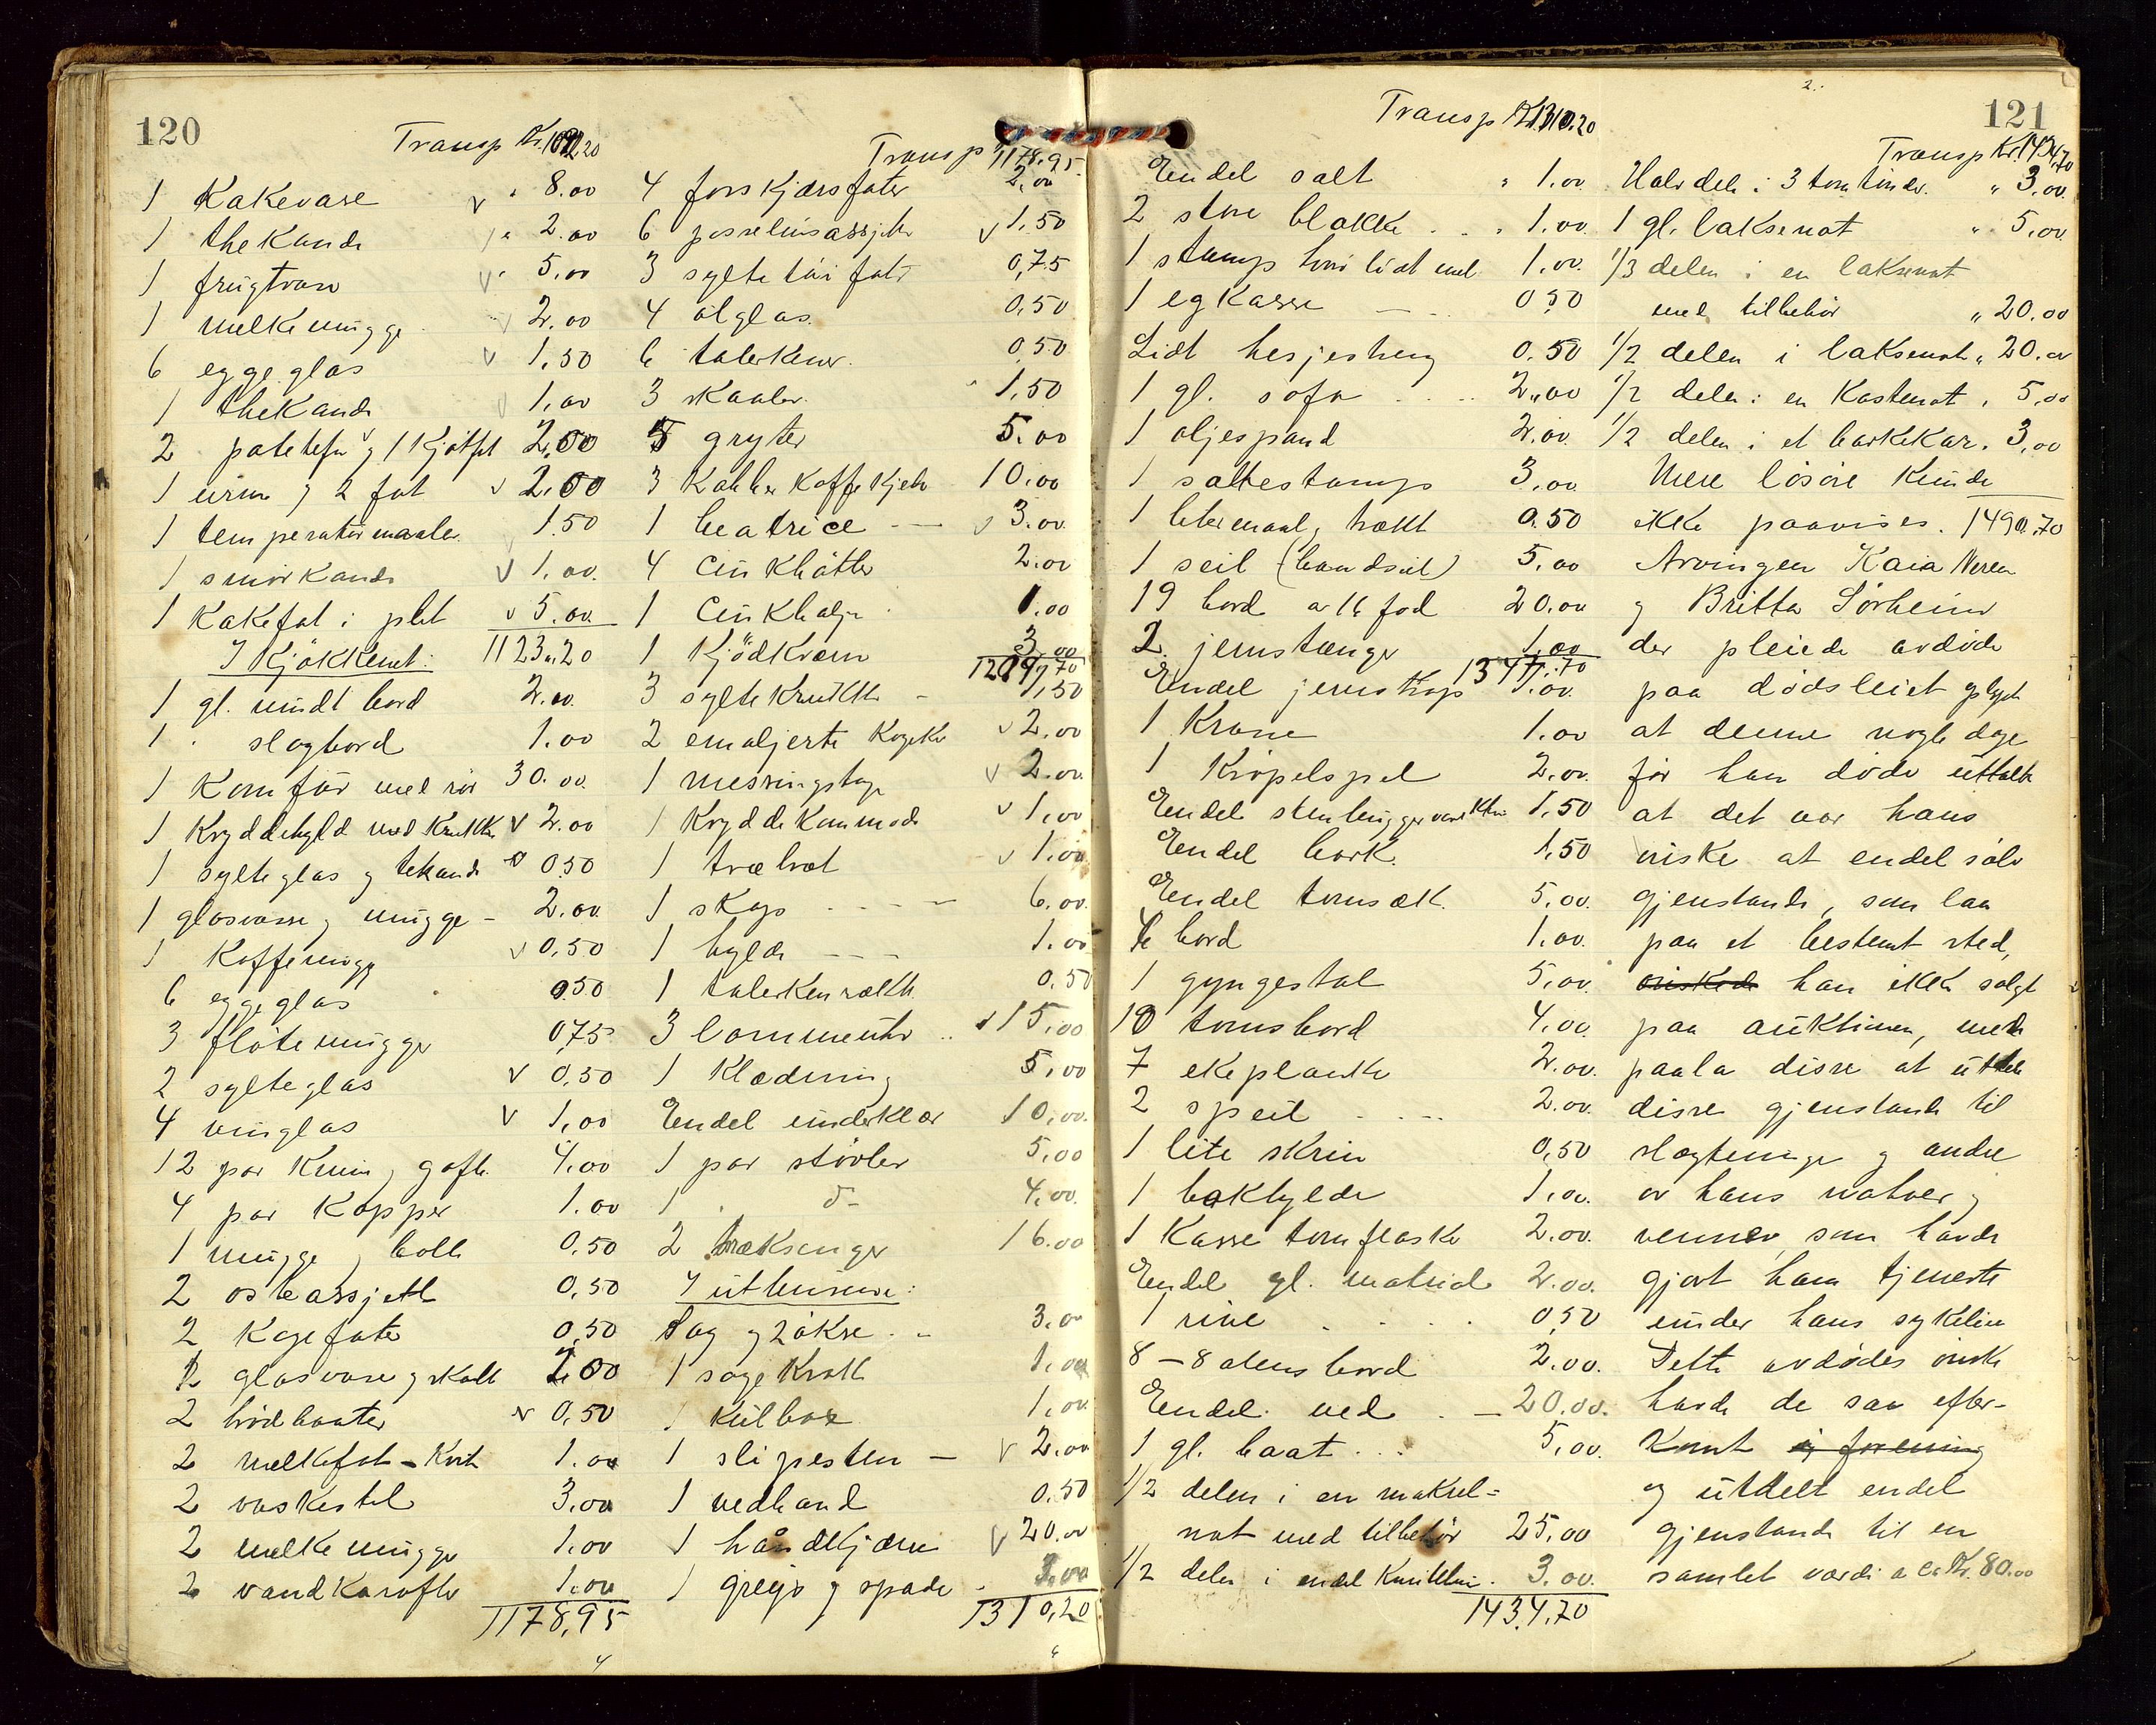 120
Transp Kr.
1 Kakevase " 8.00
1 thekande " 2.00
1 frugtvase " 5.00
1 melkemugge 2.00
6 eggeglas 1,50
1 thekande 1,00
2 og 1 Kjøtfat 2,00
1 urne og 2 fat 2.00
1 temperaturmaaler 1.50
1 smørkande 1.00.
1 Kakefat i plet 5.00.
I Kjøkkenet: 1123.20
1 gl. rundt bord 2.00.
1 " slagbord 1.00
1 Komfur med rør 30.00.
1 Kryddehyld med Krukker 2.00
1 sylteglas og tekande 0.50
1 glasvase og mugge - 2.00.
1 Kaffemugge 0.50
6 eggeglas 0.50
3 fløtemugger 0,75
2 sylteglas 0,50
4 vinglas 1,00
12 par Kniv og gafle 4,00
4 par Kopper 1.00
1 mugge og bolle 0,50
2 osteassjett 0,50
2 Kagefater 0,50
2 glasvase og skaal 1.00
2 brødbaater 0,50
2 melkefat - Kvit 1.00
2 vaskestel 3,00
2 melkemugger 1.00
2 vandkarafler 1.00
1178,95
Transp 1178,95
4 forskjærsfater 2,00
6 posselinsassjetter 1,50
3 syltetøi fat 0,75
4 ølglas. 0,50
6 talerkener. 0,50
3 skaaler. 1,50
5 gryter 5.00
3 Kobber Kaffekjeler 10.00
1 beatrice 3.00
4 Cinkbøtter 2.00
1 Cinkbalje 1.00
1 Kjødkværn 3.00
1209,70
3 syltekrukker - 1,50
2 emaljerte Kogekar 2,00
1 messingstage 2.00.
1 Krydde Kommode 1,00
1 træbret 1.00
1 skap 6.00.
1 hylde 1.00
1 talerkenrække 0.50
3 lommeuhr 15,00
1 Klædning 5,00
Endel underklær 10,00.
1 par støvler 5,00
1 " d- 4.00.
2 træksenger 16.00
I uthusene:
Sag og 2 økse 3.00
1 sagekrakk 1.00
1 Kulbox 1.00
1 slipesten - 2.00
1 vedhand 0.50
1 håndkjerre 20.00
1 greip og spade 3.00
1310,20
121
Transp Kr.1310.20
Endel salt " 1.00
2 store blokke " 1.00.
1 stamp hvori lidt mel 1.00.
1 eg Kasse 0,50
Lidt hesjestreng 0,50
1 gl. sofa 2,00
1 oljespand 2.00.
1 saltestamp 3,00
1 litermaal og trækt 0.50
1 seil (baadseil) 5.00
19 bord a 16 fod 20.00
2 jernstænger 1,00
1347,70
Endel jernskrap 1.00.
1 Krane 1.00
1 Krøpelspel 2.00.
Endel stenbryggervær 1,50
Endel bark. 1,50
Endel tomsæk. 5.00.
4 bord 1.00.
1 gyngestol 5.00.
10 tomsbord 4.00.
7 ekeplanke 2.00.
2 speil 2.00.
1 lite skrin 0,50
1 bokhylde 1.00.
1 Kasse tomflaske 2.00.
Endel gl. material 2.00.
1 rive 0,50
8 - 8 alens bord 2.00.
Endel ved 20.00.
1 gl. baat 5.00.
1/2 delen i en makrel=
not med tilbehør 25,00
1/2 delen i endel 3.00.
1434,70
Transp Kr.1434,70
Halvdelen i 3 tomtønder. " 3.00.
1 gl. laksenot " 5,00.
1/3 delen i en laksenot
med tilbehør " 20.00
1/2 delen i laksenot " 20.00
1/2 delen i en Kastenot " 5,00
1/2 delen i et barkekar " 3,00
Mere løsøre Kunde
ikke paavises. 1490.70
Arvingen Kaia
og Britta Sørheim
der pleiede avdøde
paa dødsleiet
at denne nogle dage
før han døde uttalte
at det var hans
ønske at endel sølv
gjenstande, som laa
paa et bestemt sted,
ønskede han ikke solgt
paa auktionen, men
paala disse at uttele
disse gjenstande til
slægtninge og andre
av hans naboer og
venner, som havde
gjort ham tjeneste
under hans sykeleie
Dette avdødes ønske
havde de saa efter-
komt
og utdelt endel
gjenstande til en
samlet værdi a ca Kr. 80.00